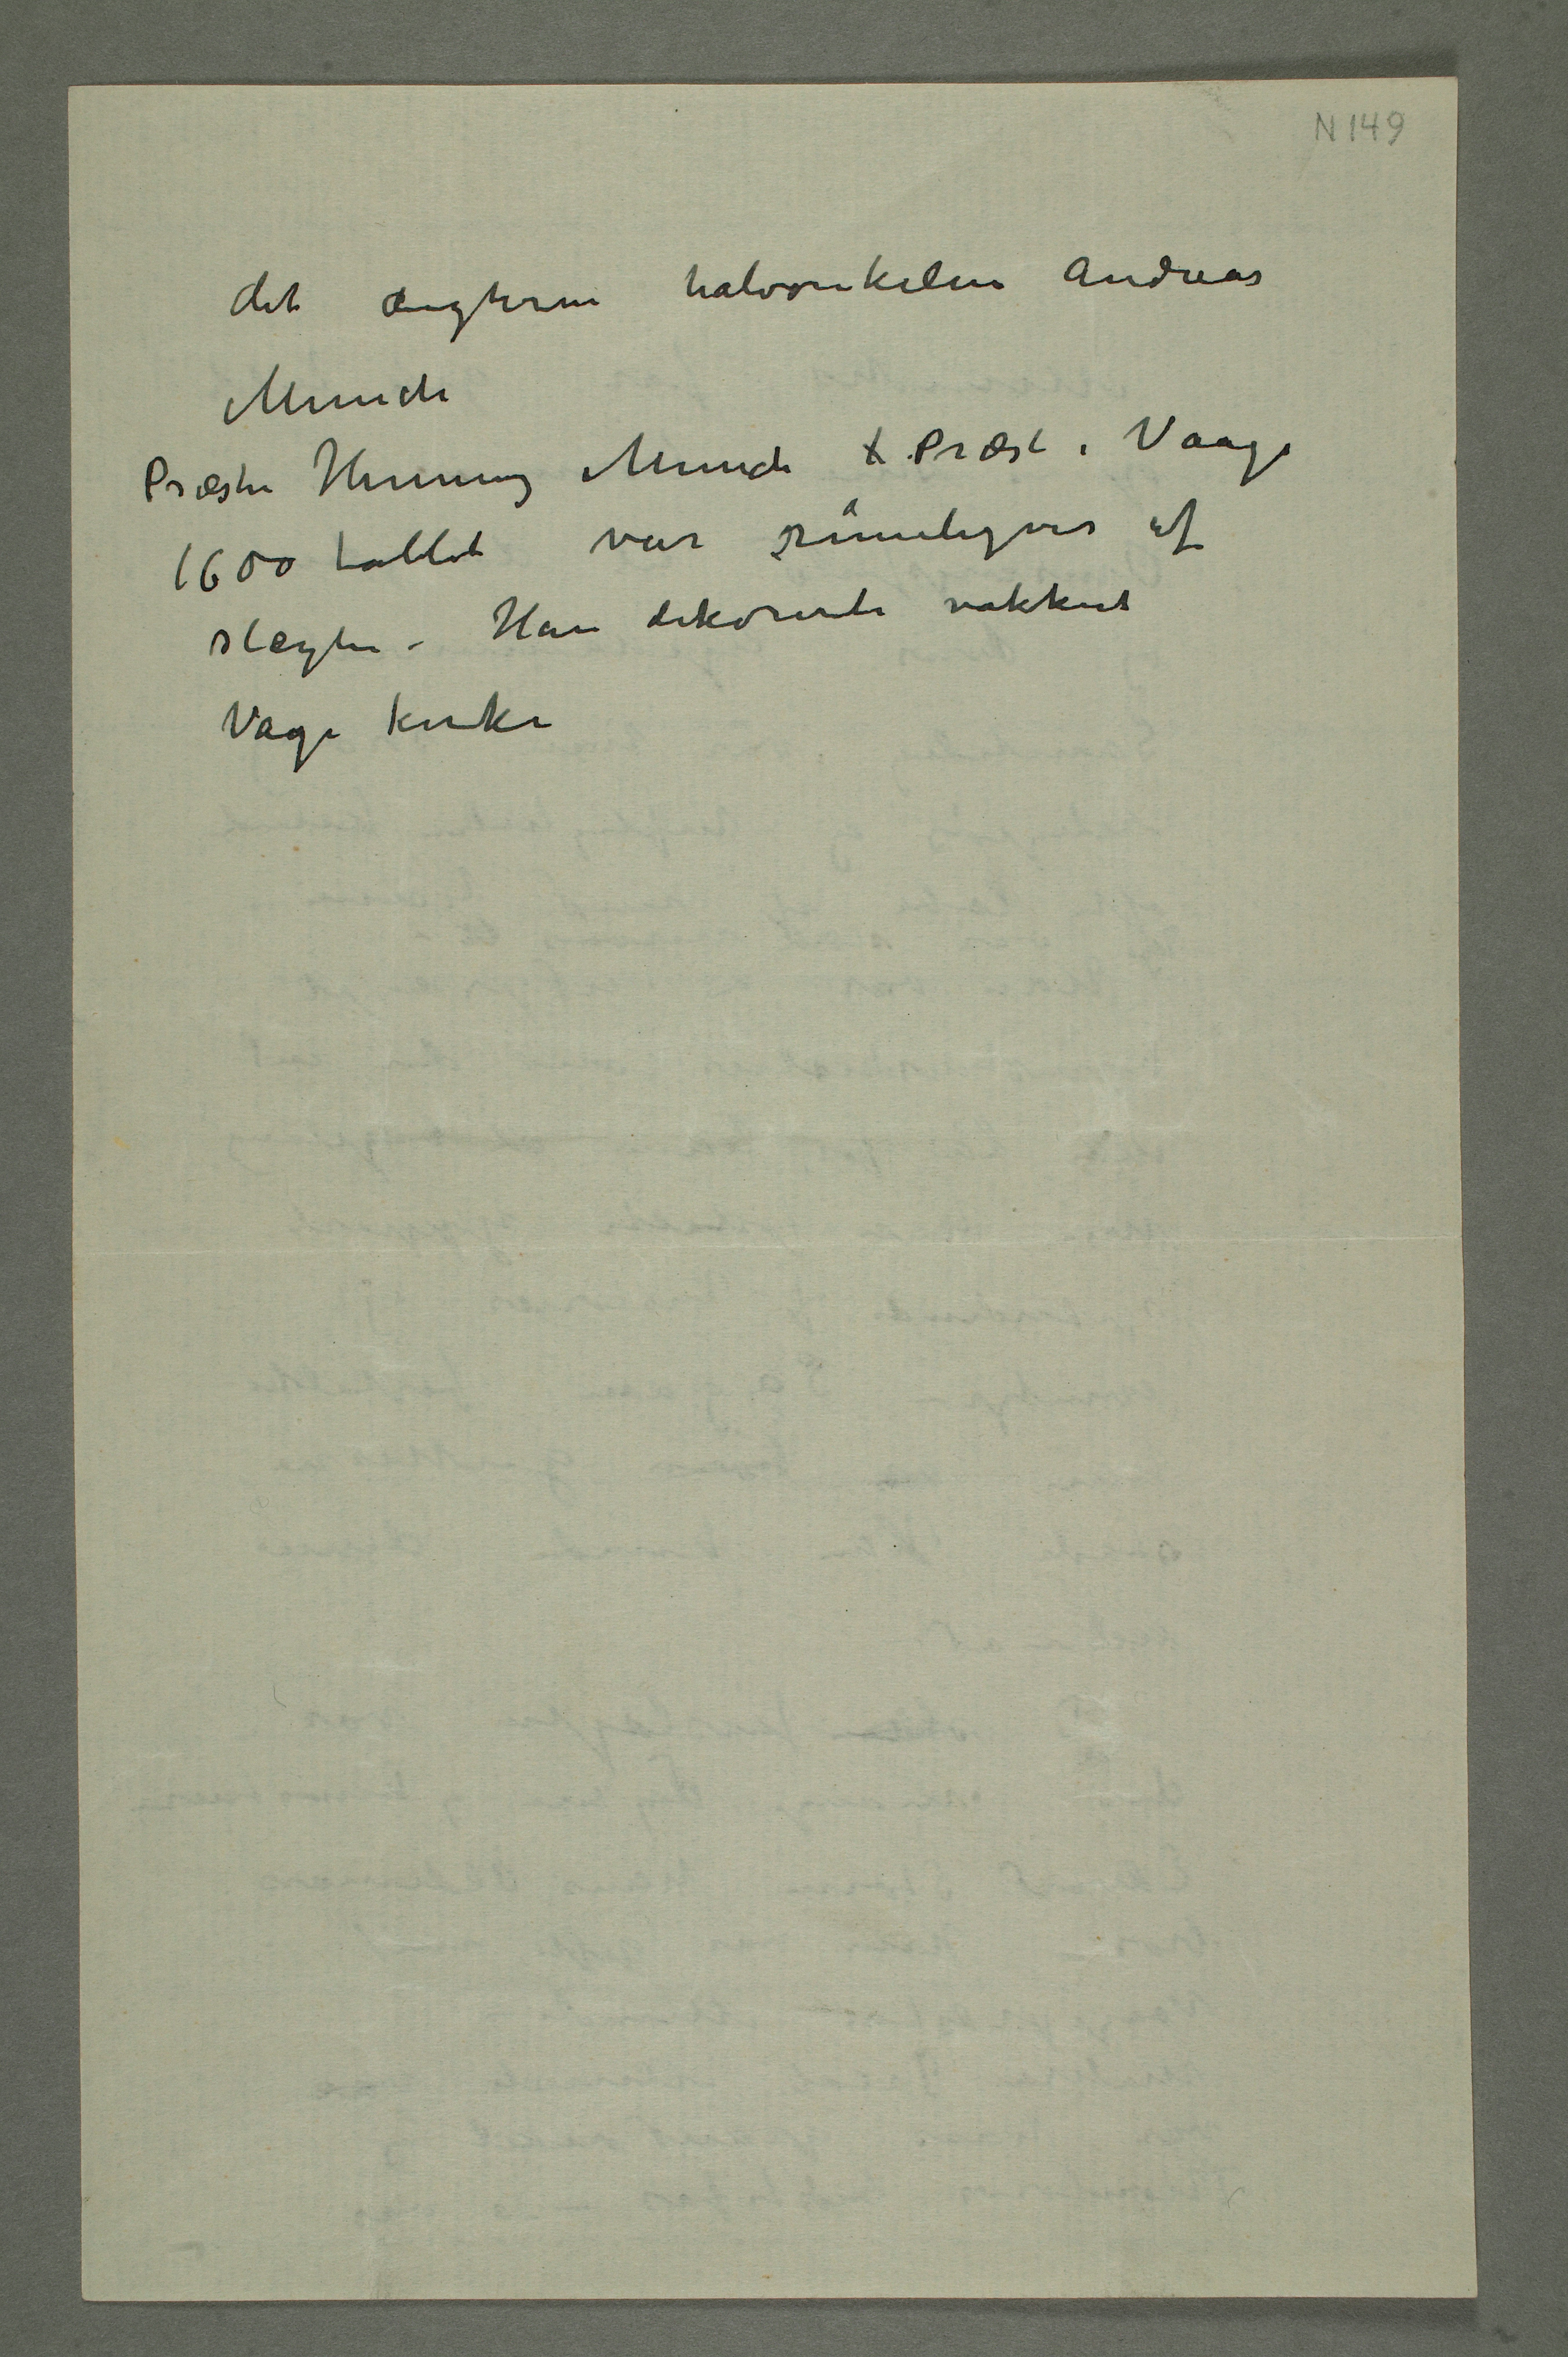 N 149
det digteren halvonkelen Andreas
Munch
Præsten Henning Munch Præst i Vaage
1600 tallet var rimeligvis af
slegten – Han dekorerte vakkert
Våge kirke